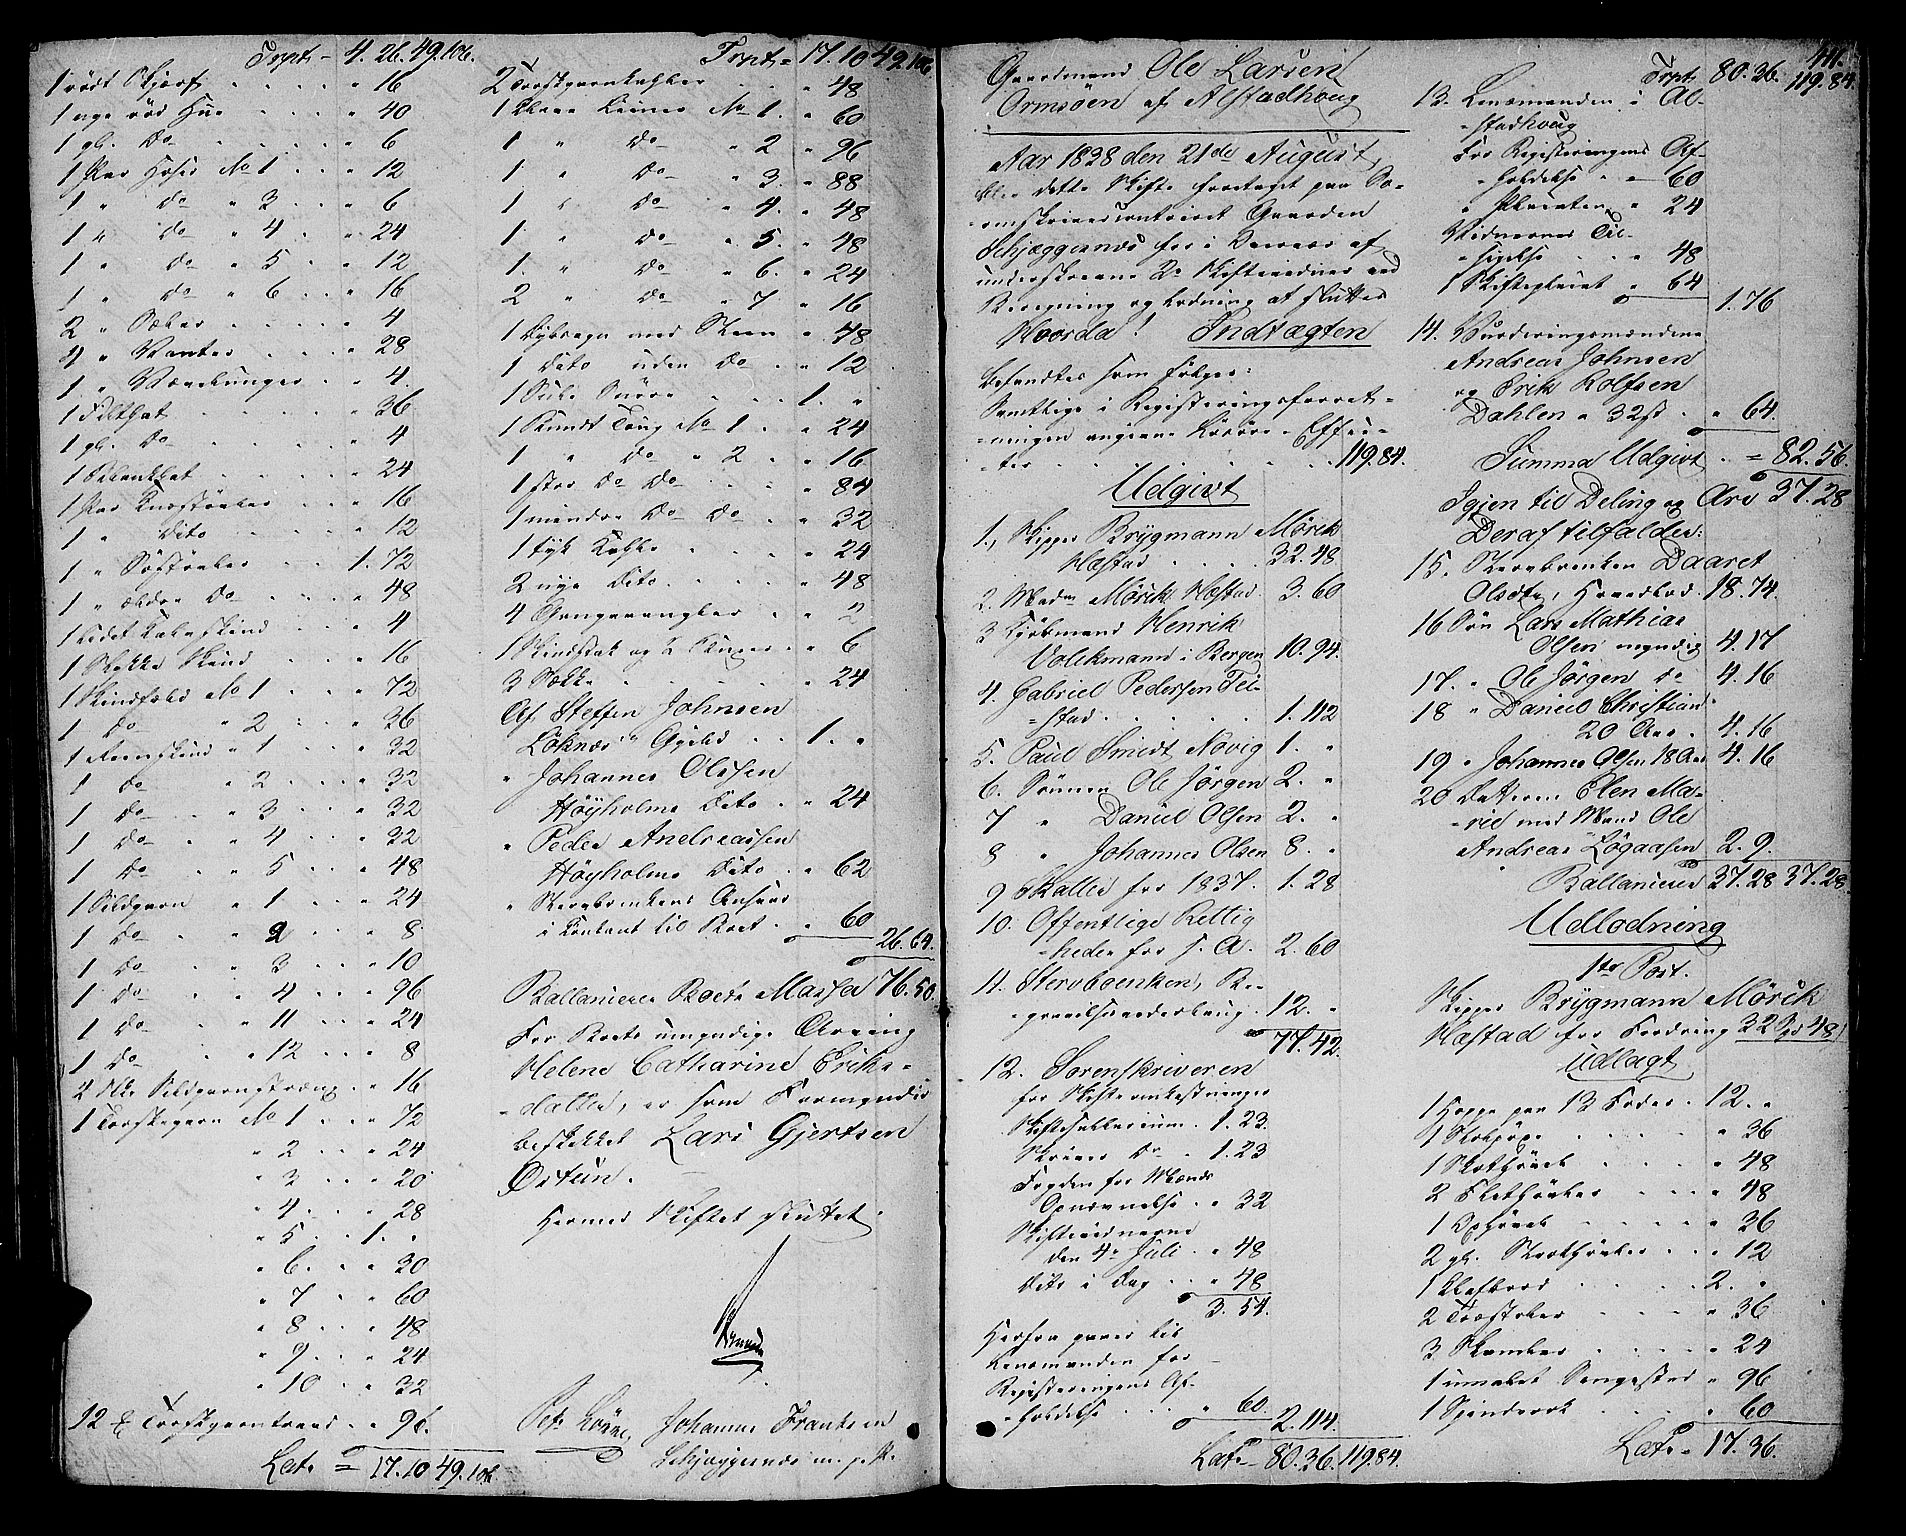 Trpt - 4. 26. 49. 106.
1 rødt Skjærf . . . . " 16
1 nye rød Hue . . . " 40
1 gl. Do . . . . " 6
1 Par Hoser No 1 . . " 12
1 " do " 3 . . " 6
1 " do " 4 . . " 24
1 " do " 5 . . " 12
1 " do " 6 . . " 16
2 " Sokker . . . " 4
4 " Vanter . . . " 28
1 " . . " 4.
1 Filthat . . . . " 36
1 gl. Do . . . . " 4
1 Blankhat . . . . " 24
1 Par Knæstøvler . . " 16
1 " Dito . . . " 12
1 " Søstøvler . . 1. 72
1 " ældre Do . . " 48
1 lidet Kalveskind . . " 4
1 Stykke Skind . . " 16
1 Skindfeld No 1 . . " 72
1 Do " 2 . . " 36
1 Reenskind " 1 . . " 32
1 Do " 2 . . " 32
1 Do " 3 . . " 32
1 Do " 4 . . " 32
1 Do " 5 . . " 48
1 Sildgarn " 1 . . " 24
1 Do " 2 . . " 8
1 Do " 3 . . " 10
1 Do " 4 . . " 96
1 Do " 11 . . " 24
1 Do " 12 . . " 8
2 Stk Sildgarnstræng . " 16
1 Torskegarn No 1 . . " 72
" 2 . . " 24
" 3 . . " 20
" 4 . . " 28
" 5 . . 1. "
" 6 . . " 30
" 7 . . " 60
" 8 . . " 48
" 9 . . " 24
" 10 . . " 32
12 Torskgarntraad . " 96.
Lat. = 17. 10 49. 106
Trpt = 17. 10 49. 106
2 Torskgarnkabler . . " 48
1 Kleve Liiner No 1. " 60
1 " Do " 2 " 96
1 " Do " 3. " 88
1 " Do " 4. " 48
1 " Do " 5. " 48
1. " Do " 6. " 24
2 " Do " 7 " 16
1 Dybsagn med Steen " 48
1 Dito uden Do . . " 12
1 Snøre . . . 1. "
1 Toug No 1 . . " 24
1 " Do " 2 . . " 16
1 stor Do Do . . . " 84
1 mindre Do Do . . " 32
1 tyk Kabbe . . . " 24
2 nye Dito . . . " 48
4 . . " 2
1 Skindstak og 2 . . " 6
3 Sække . . . . " 24
Af Steffen Johnsen
Løknæs Gjeld . . 1. "
" Johannes Olssen
Høyholms Dito . " 24
" Peder Andreassen
Høyholms Dito . " 62
" Sterboenkens Ansvar
i Contant til Boet . " 60
26. 64.
Ballancerer Boets Massa 76. 50.
For Boets umyndige Arving
Helene Catharine Eriks-
datter, er som Formynder
beskikket Lars Gjertsen
Østun.
Hermed Skiftet sluttet
Johannes Frantsen
Schjeggernæs m. p. P.
411.
Gaardmand Ole Larsen
Ormsøen af Alstadhoug
Aar 1838 den 21de August,
blev dette Skifte foretaget paa So-
renskrivercontoiret Gaarden
Schjæggernæs hos i Overvær af
underskrevne 2de Skiftevidner ved
Beregning og Lodning at sluttes
Hvorda! Indtægten
befandtes som følger:
Samtlige i Registeringsforret-
-ningen angivne Løsøre-Effec-
-ter . . . . . . 119. 84.
Udgivt
1., Skipper Brygmann Mørik
Hæstad . . . . 32. 48
2. Madm Mørik Hæstad. 3. 60
3 Kjøbmand Henrik
Volckmann i Bergen 10. 94.
4. Gabriel Pedersen Til-
-stad . . . . . 1. 112
5. Paul Smidt Novig 1. "
6. Sønnen Ole Jørgen 2. "
7 " Daniel Olsen 2. "
8 " Johannes Olsen 8. "
9 Skatter for 1837. 1. 28
10. Offentlige Rettig
-heder for s. A. 2. 60
11. Sterboenken, Be-
-gravelsesomkostning. 12. "
77. 42.
12. Sorenskriveren
for Skifteomkostninger
Skiftesallarium . 1. 23.
Skriver Do . 1. 23
Fogden for Mænds
Opnævnelse . " 32
Skiftevidnerne
den 4de Juli . " 48
Dito i Dag . . " 48
3. 54.
Herfra gaaer til
Lensmanden for
Registeringens Af-
-holdelse . . . " 60
2. 114.
Lat. - 80. 36. 119. 84.
Trpt 80. 36. 119. 84.
13. Lensmanden i Al-
-stadhoug
For Registeringens Af-
-holdelse . . " 60
" Placaten . " 24
Vidnernes Til-
-sigelse . . . " 48
1 Skifteplacat " 64
1. 76
14. Vurderingsmændene
Andreas Johnsen
og Erik Rolfsen
Dahlen a 32s . " 64.
Summa Udgivt . = 82. 56.
Igjen til Deling og Arv 37. 28
Deraf tilfalder:
15. Sterboenken Daaret
Olsdtr, Hovedlod. 18. 74.
16 Søn Lars Mathias
Olsen myndig 4. 17
17. " Ole Jørgen do 4. 16
18 " Daniel Christian
20 Aar. 4. 16
19 " Johannes Olsen 18 Aar 4. 16
20 Datteren Elen Ma-
-rie med Mand Ole
Andreas Løgaasen 2. 9.
Ballancerer 37. 28 37. 28.
Udlodning
1te Post.
Skipper Brygmann Mørik
Hæstad for Fordring 32 Spd 48s
Udlagt
1 Hoppe paa 13 Foder . 12. "
1 . . . . " 36
1 . . . . " 48
2 . . . . " 48
1 . . . . " 36
2 gl. . . " 12
1 Klafbord . . . . 2. "
2 Træstoler . . . " 36
3 Skamler . . . " 24
1 umalet Sengested . " 96
1 Spinderok . . . " 60
Lat. - 17. 36.